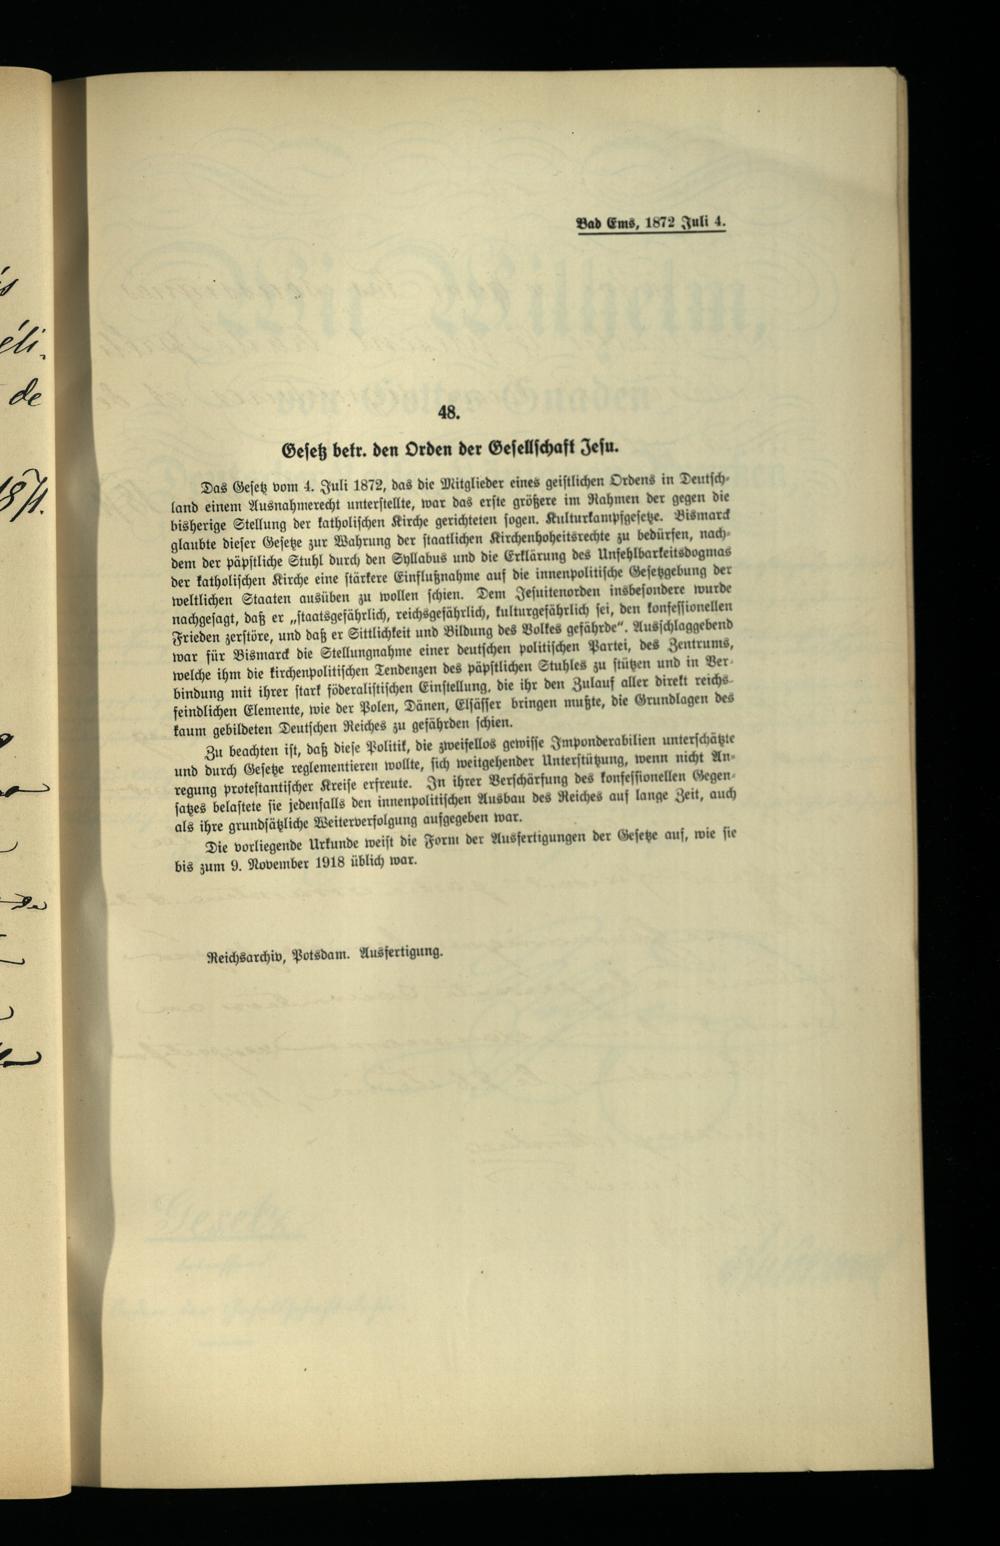 és
éli-
de
1871.
Bad Ems, 1872 Juli 4.
48.
Gesetz betr. den Orden der Gesellschaft Jesu.
Das Gesetz vom 4. Juli 1872, das die Mitglieder eines geistlichen Ordens in Deutsch-
land einem Ausnahmerecht unterstellte, war das erste größere im Rahmen der gegen die
bisherige Stellung der katholischen Kirche gerichteten sogen. Kulturkampfgesetze. Bismarck
glaubte dieser Gesetze zur Wahrung der staatlichen Kirchenhoheitsrechte zu bedürfen, nach-
dem der päpstliche Stuhl durch den Syllabus und die Erklärung des Unfehlbarkeitsdogmas
der katholischen Kirche eine stärkere Einflußnahme auf die innenpolitische Gesetzgebung der
weltlichen Staaten ausüben zu wollen schien. Dem Jesuitenorden insbesondere wurde
nachgesagt, daß er „staatsgefährlich, reichsgefährlich, kulturgefährlich sei, den konfessionellen
Frieden zerstöre, und daß er Sittlichkeit und Bildung des Volkes gefährde“. Ausschlaggebend
war für Bismarck die Stellungnahme einer deutschen politischen Partei, des Zentrums,
welche ihm die kirchenpolitischen Tendenzen des päpstlichen Stuhles zu stützen und in Ver-
bindung mit ihrer stark föderalistischen Einstellung, die ihr den Zulauf aller direkt reichs-
feindlichen Elemente, wie der Polen, Dänen, Elsässer bringen mußte, die Grundlagen des
kaum gebildeten Deutschen Reiches zu gefährden schien.
Zu beachten ist, daß diese Politik, die zweifellos gewisse Imponderabilien unterschätzte
und durch Gesetze reglementieren wollte, sich weitgehender Unterstützung, wenn nicht An-
regung protestantischer Kreise erfreute. In ihrer Verschärfung des konfessionellen Gegen-
satzes belastete sie jedenfalls den innenpolitischen Ausbau des Reiches auf lange Zeit, auch
als ihre grundsätzliche Weiterverfolgung aufgegeben war.
Die vorliegende Urkunde weist die Form der Ausfertigungen der Gesetze auf, wie sie
bis zum 9. November 1918 üblich war.
Reichsarchiv, Potsdam. Ausfertigung.